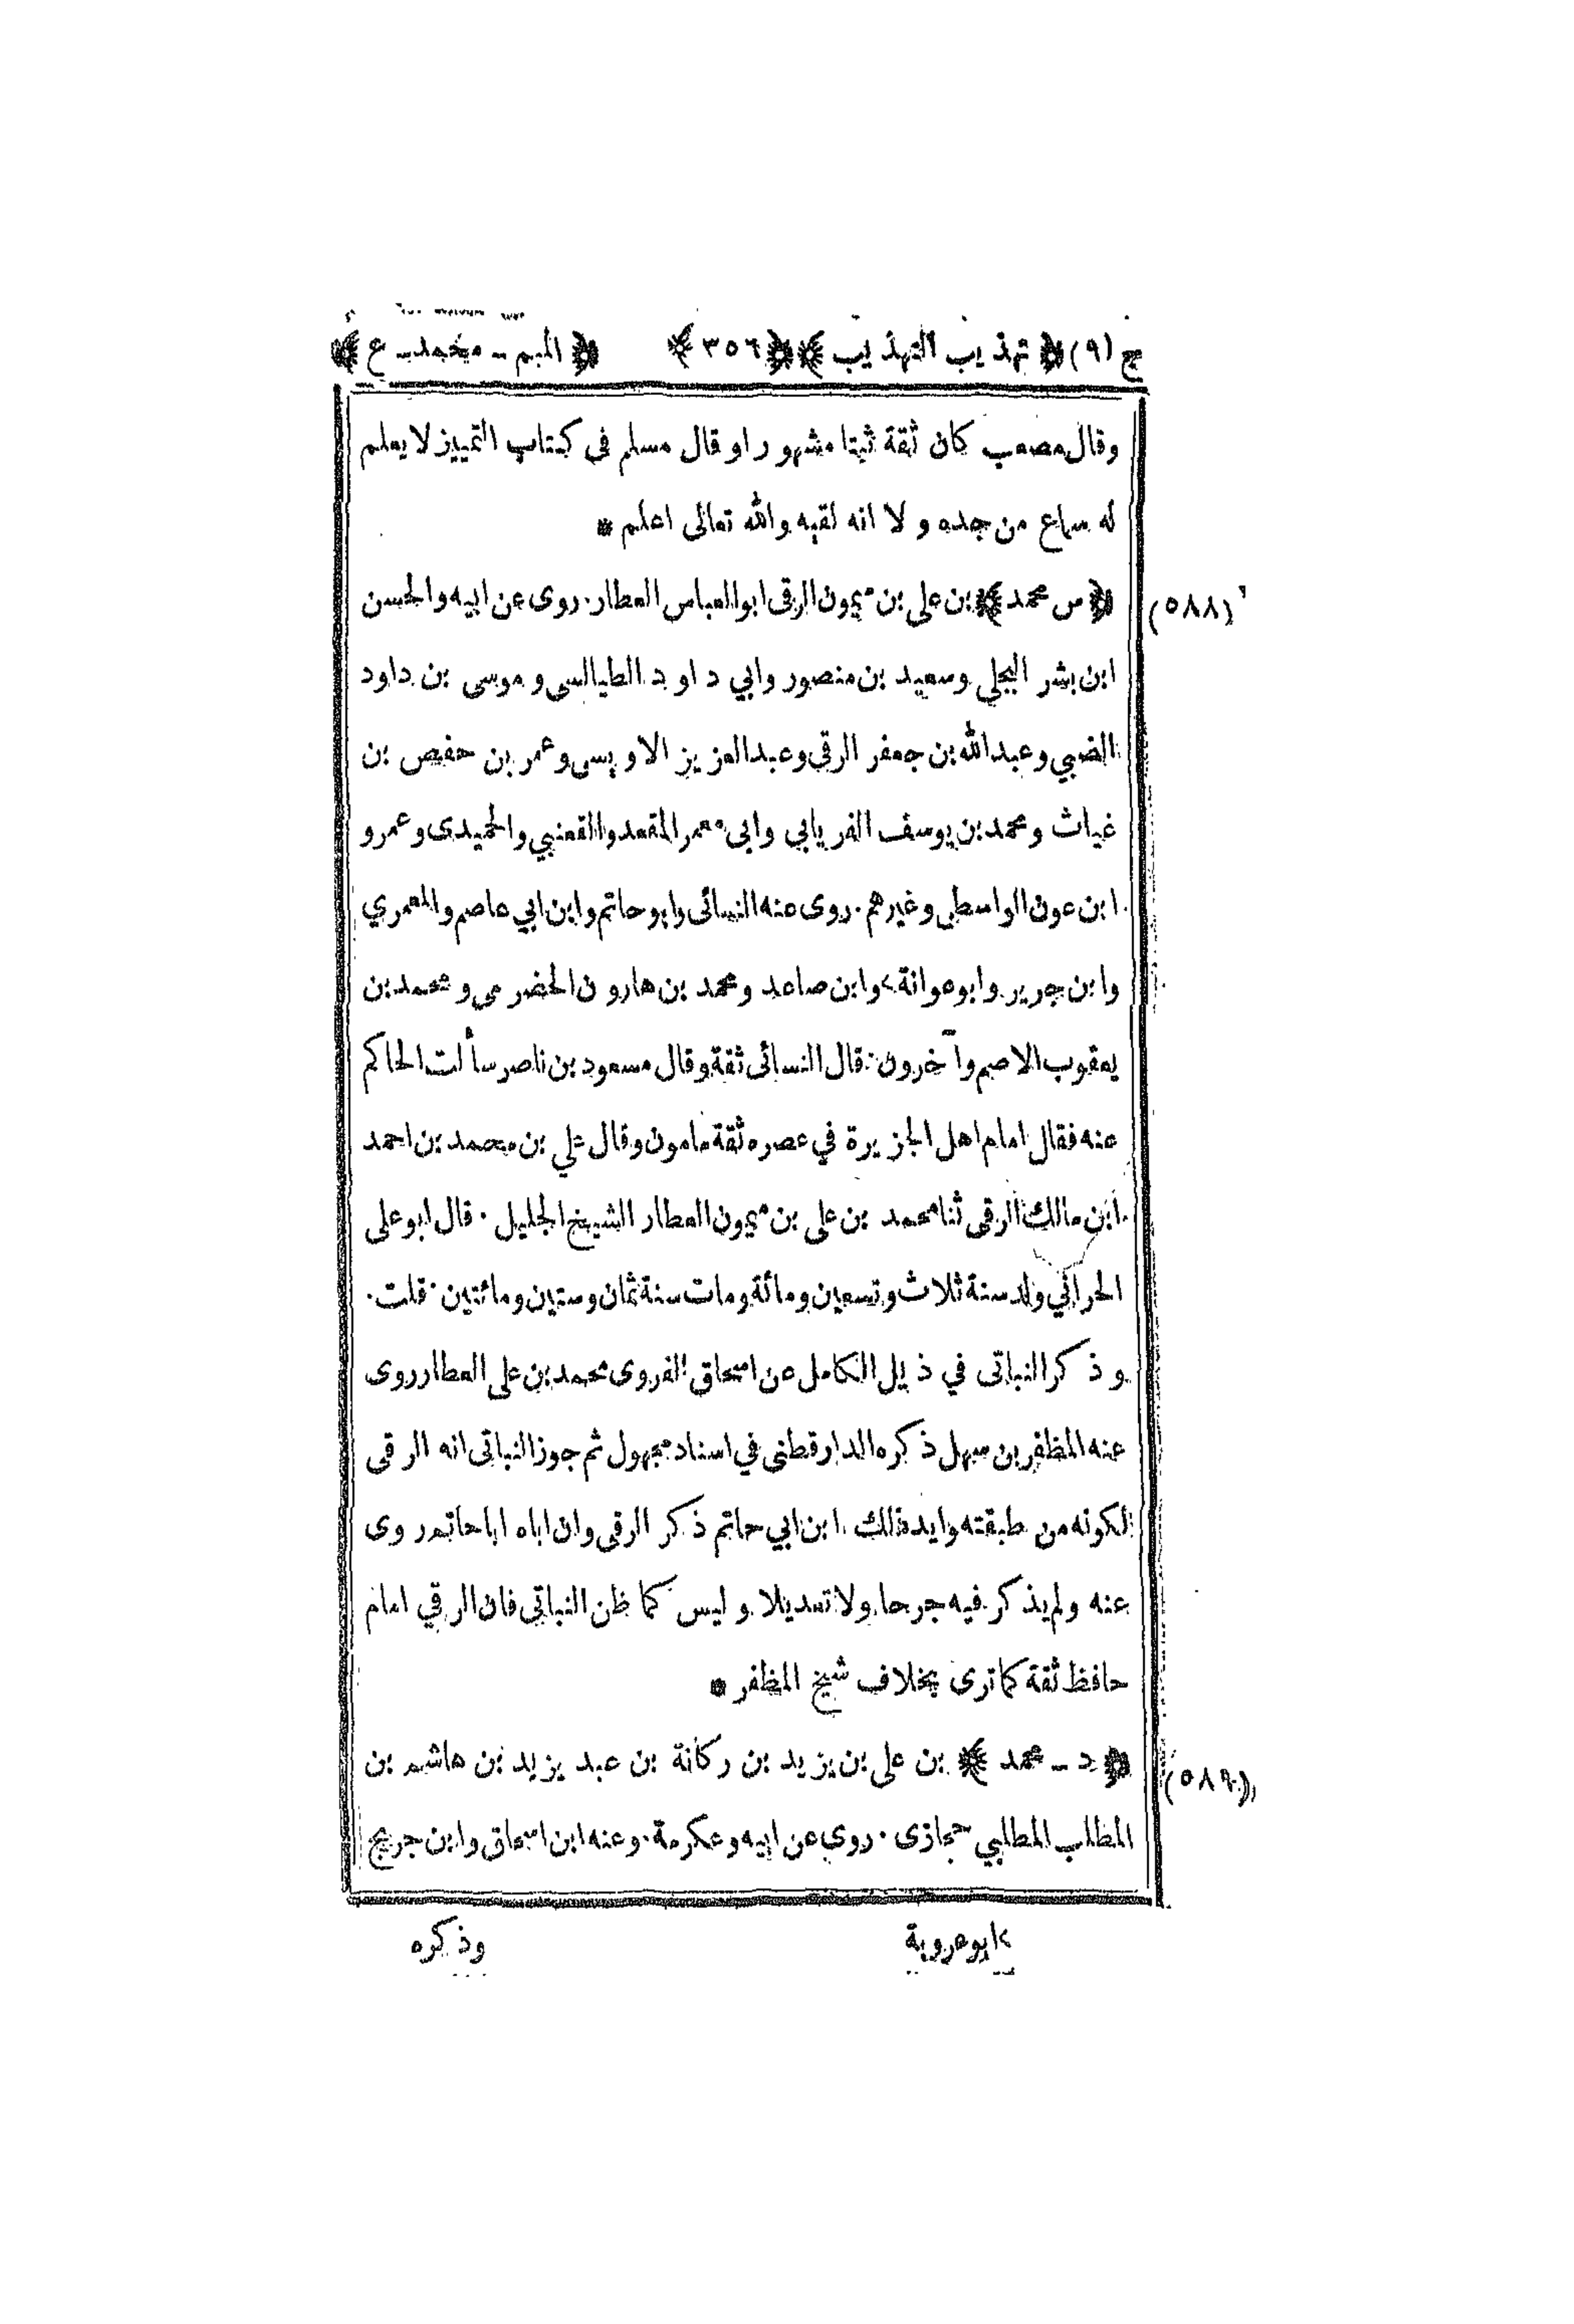 ج (٩) ﴿ تهذيب التهذيب ﴾ ﴿ ٣٥٦ ﴾ ﴿ الميم - محمد - ع ﴾
وقال مصعب كان ثقة ثبتا مشهورا وقال مسلم فى كتاب التمييز لا يعلم
له سماع من جده ولا انه لقيه والله تعالى اعلم *
(٥٨٨) ﴿ س محمد ﴾ بن على بن ميمون الرقى ابو العباس العطار. روى عن ابيه والحسن
ابن بشر البجلي وسعيد بن منصور وابي داود الطيالسى وموسى بن داود
الضبي وعبد الله بن جعفر الرقى وعبد العزيز الاويسى وعمر بن حفص بن
غياث ومحمد بن يوسف الفريابي وابى معمر المقعد والقعنبي والحميدى وعمرو
ابن عون الواسطي وغيرهم. روى عنه النسائى وابو حاتم وابن ابي عاصم والمعمري
وابن جرير وابو عوانة > وابن صاعد ومحمد بن هارون الحضرمي ومحمد بن
يعقوب الاصم وآخرون. قال النسائى ثقة وقال مسعود بن ناصر سألت الحاكم
عنه فقال امام اهل الجزيرة في عصره ثقة مامون وقال علي بن محمد بن احمد
ابن مالك الرقى ثنا محمد بن على بن ميمون العطار الشيخ الجليل. قال ابو على
الحراني ولد سنة ثلاث وتسعين ومائة ومات سنة ثمان وستين ومائتين. قلت.
وذكر النباتى في ذيل الكامل عن اسحاق الفروى محمد بن على العطار روى
عنه المظفر بن سهل ذكره الدارقطنى في اسناد مجهول ثم جوز النباتى انه الرقى
لكونه من طبقته وايد ذلك ابن ابي حاتم ذكر الرقى وان اباه ابا حاتم روى
عنه ولم يذكر فيه جرحا ولا تعديلا وليس كما ظن النباتى فان الرقي امام
حافظ ثقة كما ترى بخلاف شيخ المظفر *
(٥٨٩) ﴿ د - محمد ﴾ بن على بن يزيد بن ركانة بن عبد يزيد بن هاشم بن
المطلب المطلبي حجازى. روى عن ابيه وعكرمة. وعنه ابن اسحاق وابن جريج
> ابو عروبة
وذكره